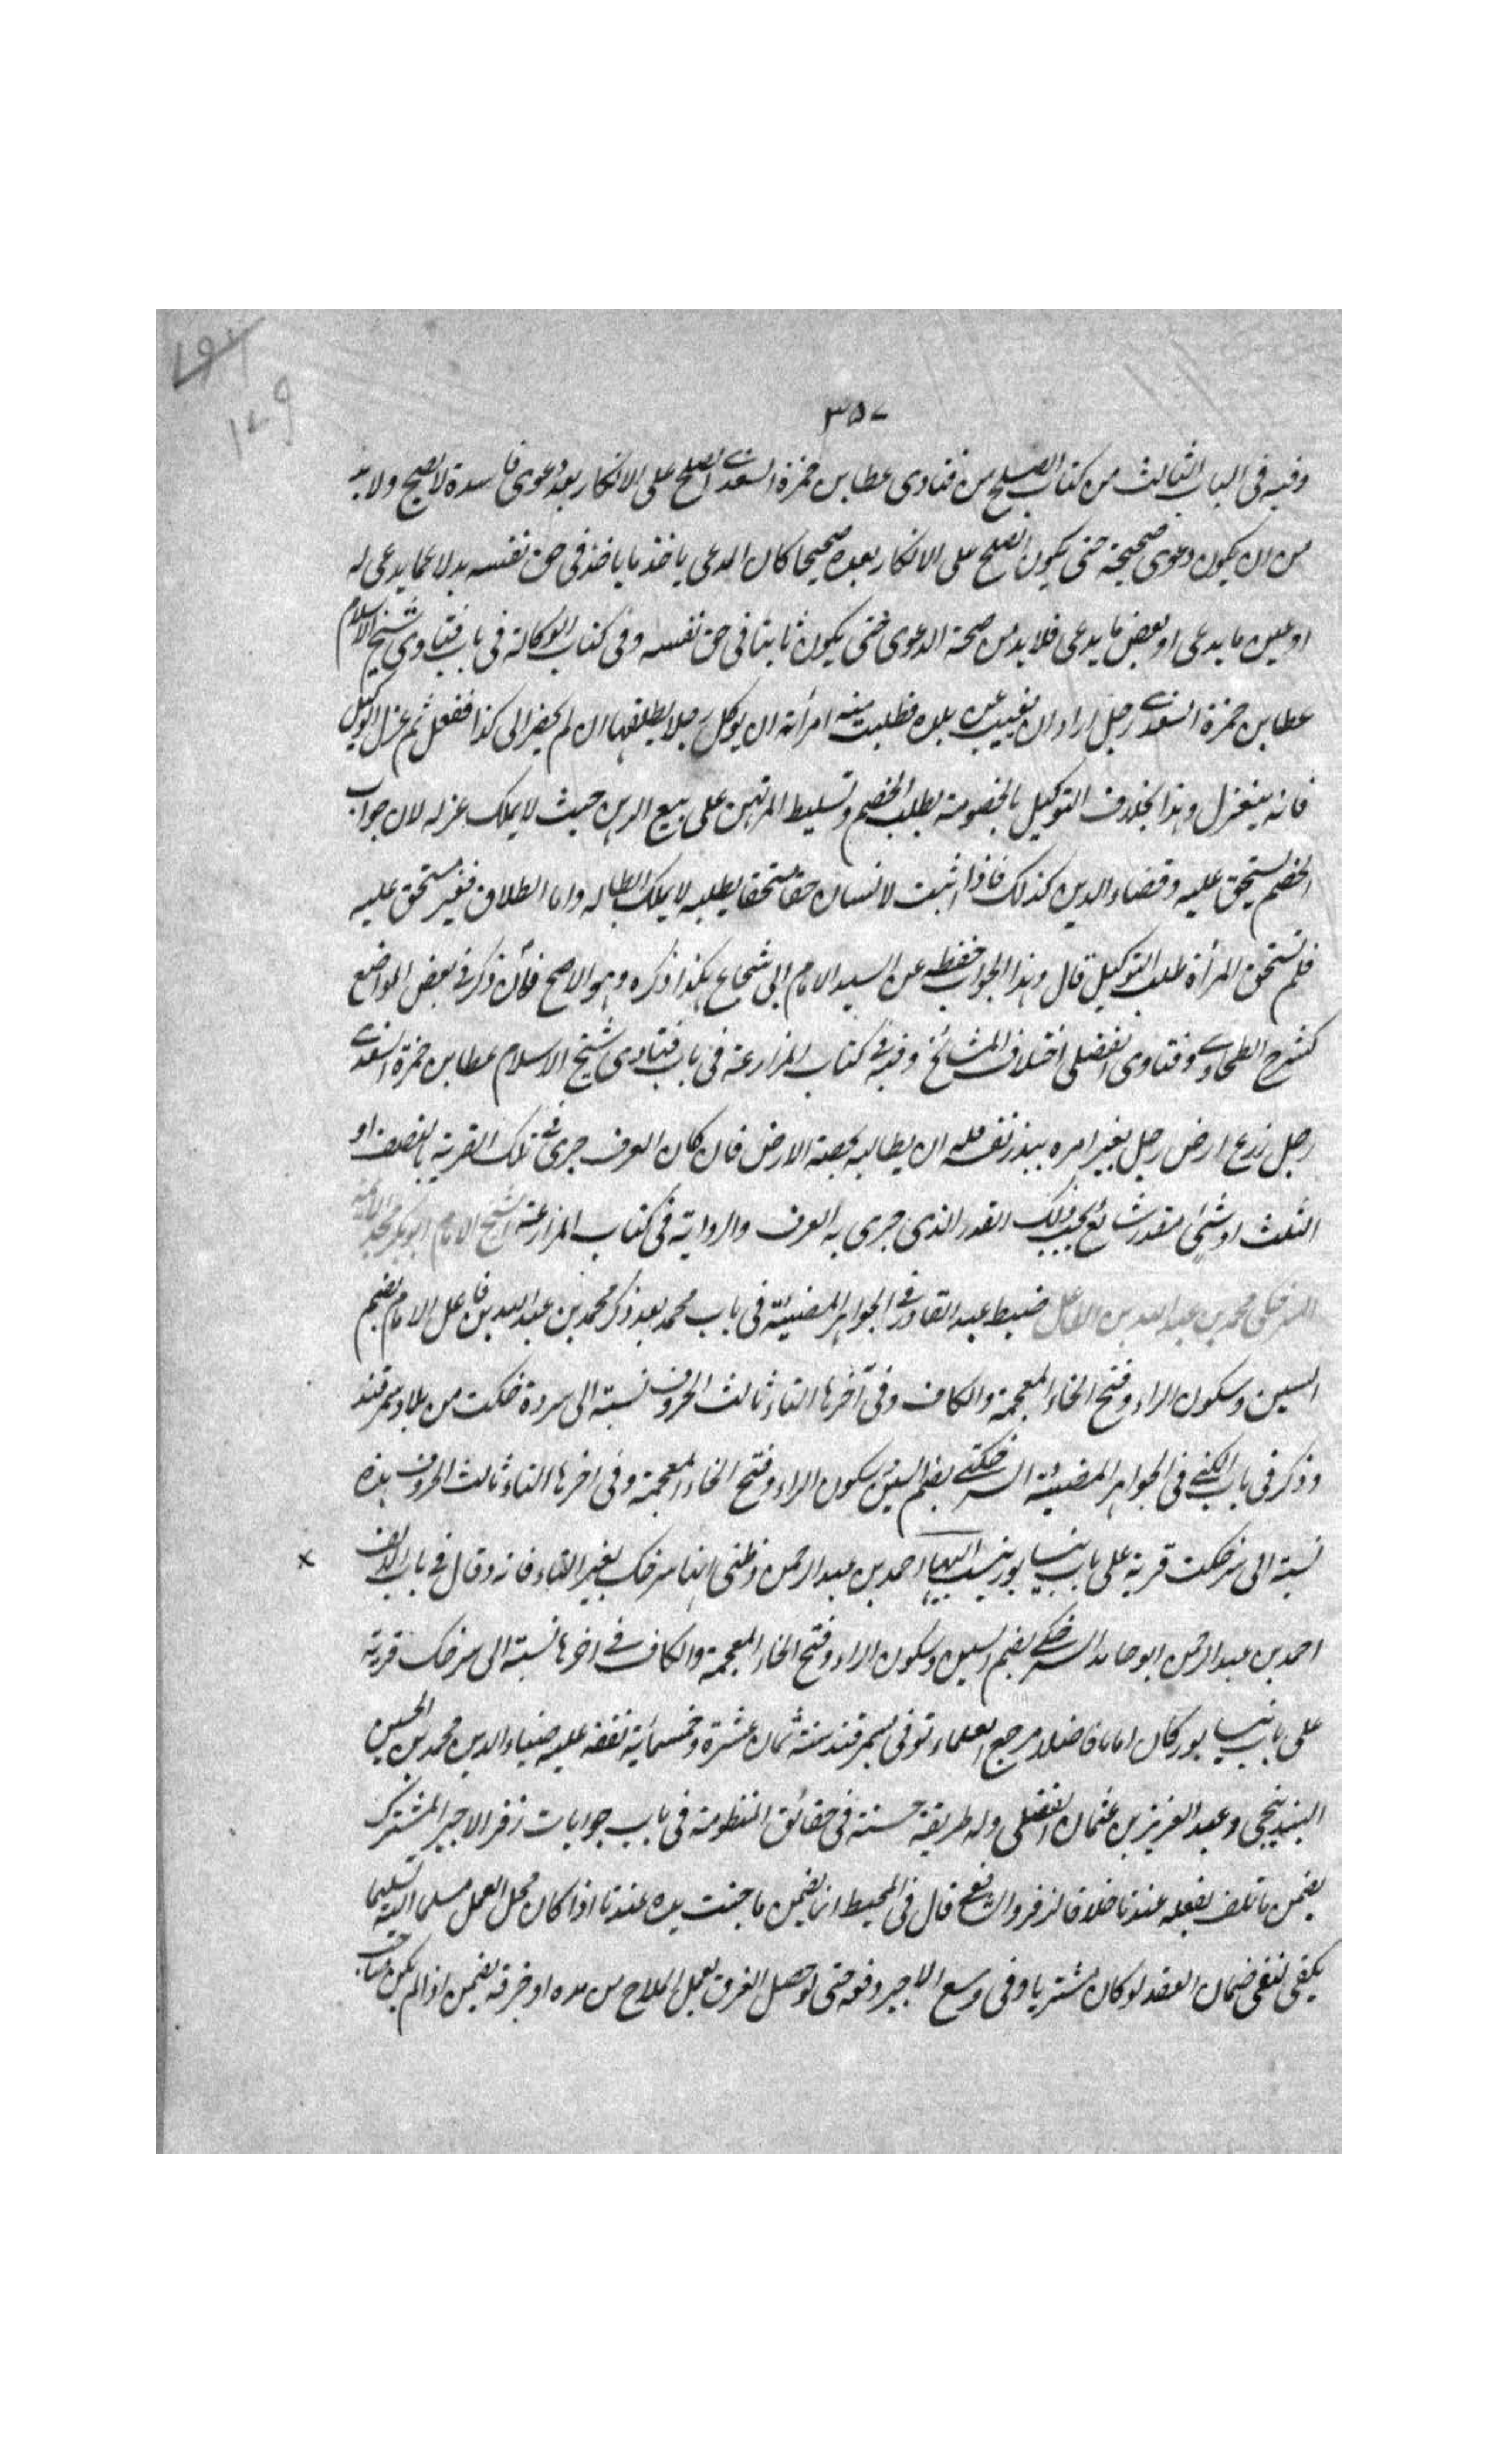 ٣٥٧
وفيه فى الباب الثالث من كتاب الصلح من فتاوى عطا بن حمزة السغدى الصلح على الانكار بعد دعوى فاسدة لا يصح ولا بد
من ان يكون دعوى صحيحة حتى يكون الصلح على الانكار بعده صحيحا كان المدعى ياخذ ما ياخذ فى حق نفسه بدلا عما يدعى له
او عين ما يدعى او بعض ما يدعى فلا بد من صحة الدعوى حتى يكون ثابتا فى حق نفسه وفى كتاب الوكالة فى باب فتاوى شيخ الاسلام
عطا بن حمزة السغدى رجل اراد ان يغيب عن بلده فطلبت منه امرأته ان يوكل رجلا يطلقها ان لم يحضر الى كذا ففعل ثم عزل الوكيل
فانه ينعزل وهذا بخلاف التوكيل بالخصومة بطلب الخصم وتسليط المرتهن على بيع الرهن حيث لا يملك عزله لان جواب
الخصم يستحق عليه وقضاء الدين كذلك فاذا اثبت لانسان حقا مستحقا يطلبه لا يملك ابطاله واما الطلاق فغير مستحق عليه
فلم تستحق المرأة طلب التوكيل قال وهذا الجواب حفظه عن السيد الامام ابى شجاع هكذا ذكره وهو الاصح فان ذكر فى بعض المواضع
كشرح الطحاوى وفتاوى الفضلى اختلاف المشائخ وفيه فى كتاب المزارعة فى باب فتاوى شيخ الاسلام عطا بن حمزة السغدى
رجل زرع ارض رجل بغير امره ببذر نفسه له ان يطالبه بحصة الارض فان كان العرف جرى فى تلك القرية بالنصف او
الثلث او شئ مقدر شائع يجب ذلك القدر الذى جرى به العرف والرواية فى كتاب المزارعة الشيخ الامام ابو بكر مجد الائمة
السرخكى محمد بن عبد الله بن الفاعل ضبط عبد القادر فى الجواهر المضيئة فى باب محمد بعد ذكر محمد بن عبد الله بن فاعل الامام بضم
السين وسكون الراء وفتح الخاء المعجمة والكاف وفى آخرها التاء ثالث الحروف نسبة الى سردة خكت من بلاد سمرقند
وذكر فى باب الكنى فى الجواهر المضيئة السرخكتى بضم السين وسكون الراء وفتح الخاء المعجمة وفى آخرها التاء ثالث الحروف هذه
نسبة الى سرخكت قرية على باب نيسابور ينسب اليها احمد بن عبد الرحمن وظنى انها سرخك بغير التاء فانه وقال فى باب الالف
احمد بن عبد الرحمن ابو حامد السرخكى بضم السين وسكون الراء وفتح الخاء المعجمة والكاف فى اخرها نسبة الى سرخك قرية
على باب نيسابور كان اماما فاضلا مرجع العلماء توفى بسمرقند سنة ثمان عشرة وخمسمائة تفقه عليه ضياء الدين محمد بن الحسين
البندنيجى وعبد العزيز بن عثمان الفضلى وله طريقة حسنة فى حقائق المنظومة فى باب جوابات زفر الاجير المشترك
يضمن ما تلف بفعله عندنا خلافا لزفر والشافعى قال فى المحيط انما يضمن ما جنت يده عندنا اذا كان محل العمل مسلما اليه تسليما
يكفى لنفى ضمان العقد لو كان مشتريا وفى وسع الاجير دفعه حتى لو حصل الغرق بعمل الملاح من مده او خرقه يضمن اذا لم يكن صاحب